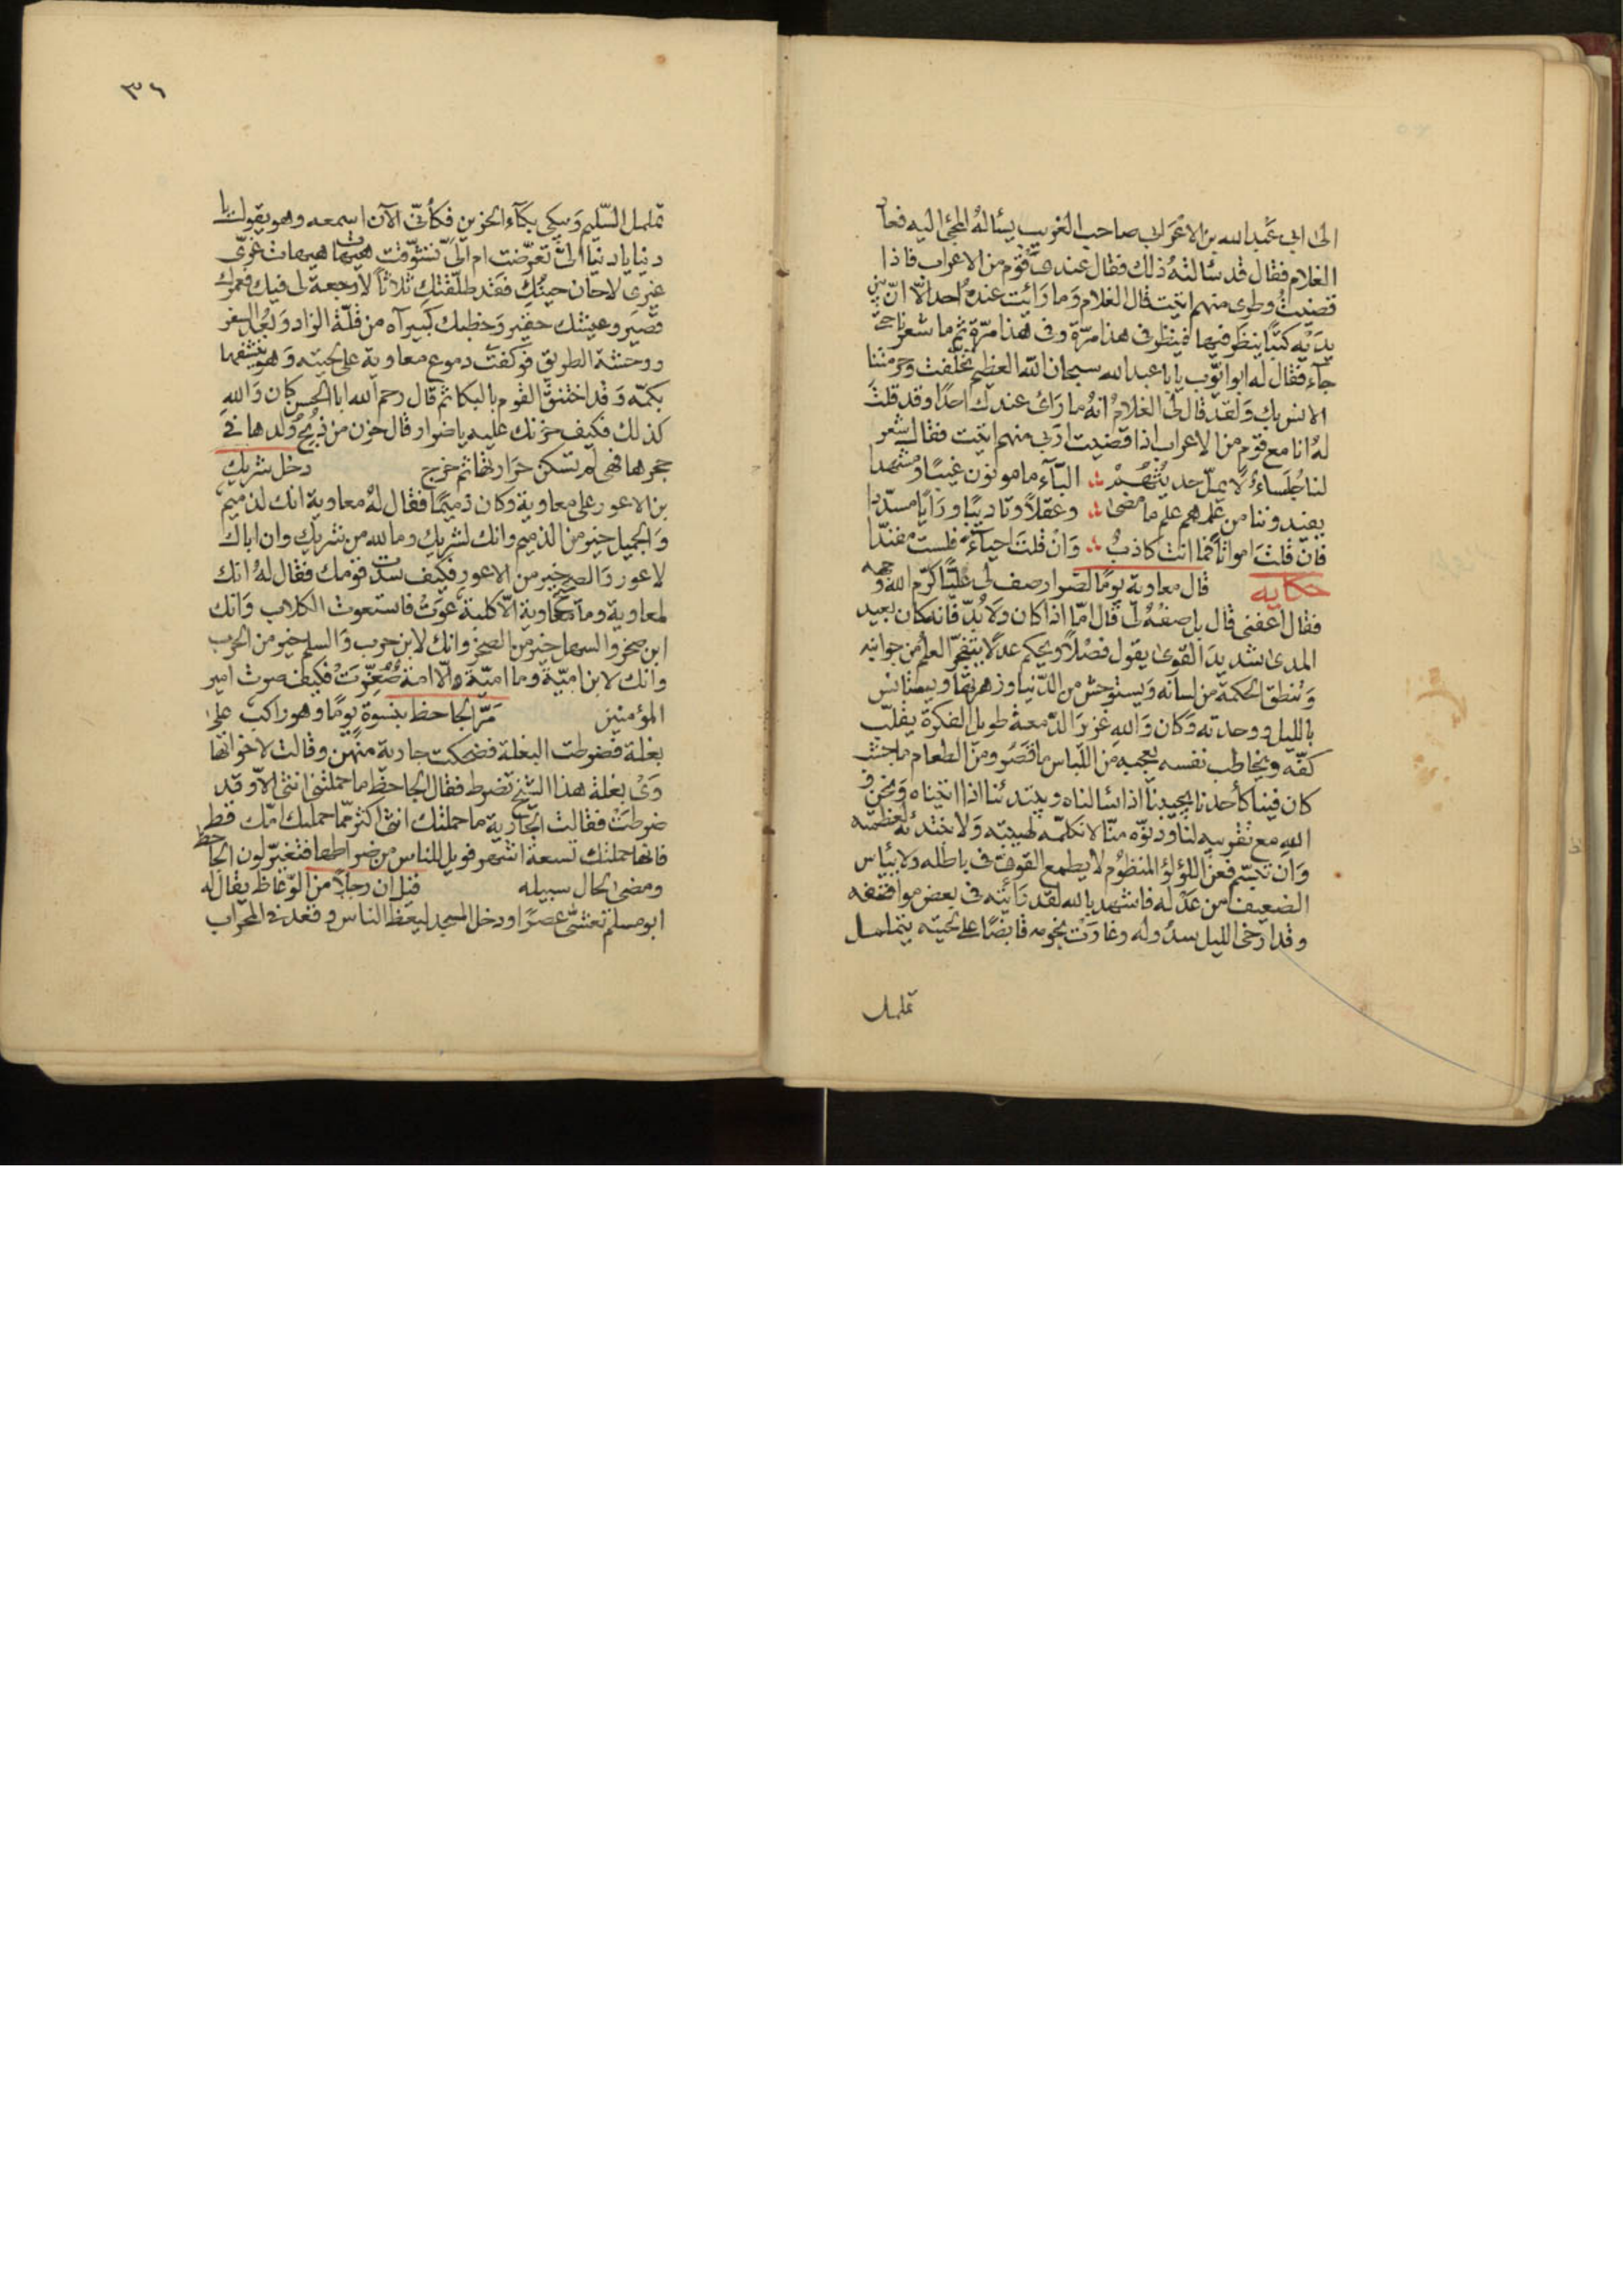 الى ابى عبد الله بن الاعرابى صاحب الغريب يسأله المجئ اليه فعاد
الغلام فقال قد سألته ذلك فقال عندى قوم من الاعراب فاذا
قضيت وطرى منهم اتيت قال الغلام وما رأيت عنده احدا الا ان بين
يديه كتبا ينظر فيها فينظر فى هذا مرة وفى هذا مرة ثم ما شعرنا حتى
جاء فقال له ابو ايوب يابا عبد الله سبحان الله العظيم تخلفت وحرمتنا
الانس بك ولقد قال لى الغلام انه ما رأى عندك احدا وقد قلت
له انا مع قوم من الاعراب اذا قضيت اربى منهم اتيت فقال شعر
لنا جلساء لا يمل حديثهم ؞ البآء مامونون غيبا ومشهدا
يفيدوننا من علمهم علم ما مضى ؞ وعقلا وتاديبا ورايا مسددا
فان قلت امواتا فما انت كاذب ؞ وان قلت احياء فلست مفندا
حكايه قال معاوية يوما لضرار صف لى عليا كرم الله وجهه
فقال اعفنى قال بل صفه لى قال اما اذا كان ولا بد فانه كان بعيد
المدى شديد القوى يقول فصلا ويحكم عدلا يتفجر العلم من جوانبه
وتنطق الحكمة من لسانه ويستوحش من الدنيا وزهرتها ويستانس
بالليل ووحدته وكان والله غزير الدمعة طويل الفكرة يقلب
كفه ويخاطب نفسه يعجبه من اللباس ما قصر ومن الطعام ما جشب
كان فينا كأحدنا يجيبنا اذا سالناه ويبتدئنا اذا اتيناه ونحن و
الله مع تقريبه لنا ودنوه منا لا نكلمه لهيبته ولا نبتدئه لعظمته
وان تبسم فعن اللؤلؤ المنظوم لا يطمع القوى فى باطله ولا يياس
الضعيف من عدله فاشهد بالله لقد رأيته فى بعض مواقفه
وقد ارخى الليل سدوله وغارت نجومه قابضا على لحيته يتململ
تململ
٣٦
تململ السليم ويبكى بكآء الحزين فكأنى الآن اسمعه وهو يقول يا
دنيا يا دنيا الى تعرضت ام الى تشوقت هيهات هيهات غرى
غيرى لا حان حينك فقد طلقتك ثلاثا لا رجعة لى فيك فعمرك
قصير وعيشك حقير وخطبك كبير آه من قلة الزاد وبعد السفر
ووحشة الطريق فوكفت دموع معاوية على لحيته وهو ينشفها
بكمه وقد اختنق القوم بالبكا ثم قال رحم الله ابا الحسن كان والله
كذلك فكيف حزنك عليه يا ضرار قال حزن من ذبح ولدها فى
حجرها فهى لم تسكن حرارتها ثم خرج دخل شريك
بن الاعور على معاوية وكان دميما فقال له معاوية انك لدميم
والجميل خير من الدميم وانك لشريك وما لله من شريك وان اباك
لاعور والصحيح خير من الاعور فكيف سدت قومك فقال له انك
لمعاوية وما معاوية الا كلبة عوت فاستعوت الكلاب وانك
ابن صخر والسهل خير من الصخر وانك لابن حرب والسلم خير من الحرب
وانك لابن امية وما امية والا امة صغرت فكيف صرت امير
المؤمنين مر الجاحظ بنسوة يوما وهو راكب على
بغلة فضرطت البغلة فضحكت جارية منهن وقالت لاخواتها
وى بغلة هذا الشيخ تضرط فقال الجاحظ ما حملتنى انثى الا وقد
ضرطت فقالت الجارية ما حملتك انثى اكثر مما حملتك امك قط
فانها حملتك تسعة اشهر فويل للناس من ضراطها فتغير لون الجاحظ
ومضى لحال سبيله قيل ان رجلا من الوعاظ يقال له
ابو مسلم تعشى عصرا ودخل المسجد ليعظ الناس وقعد فى المحراب